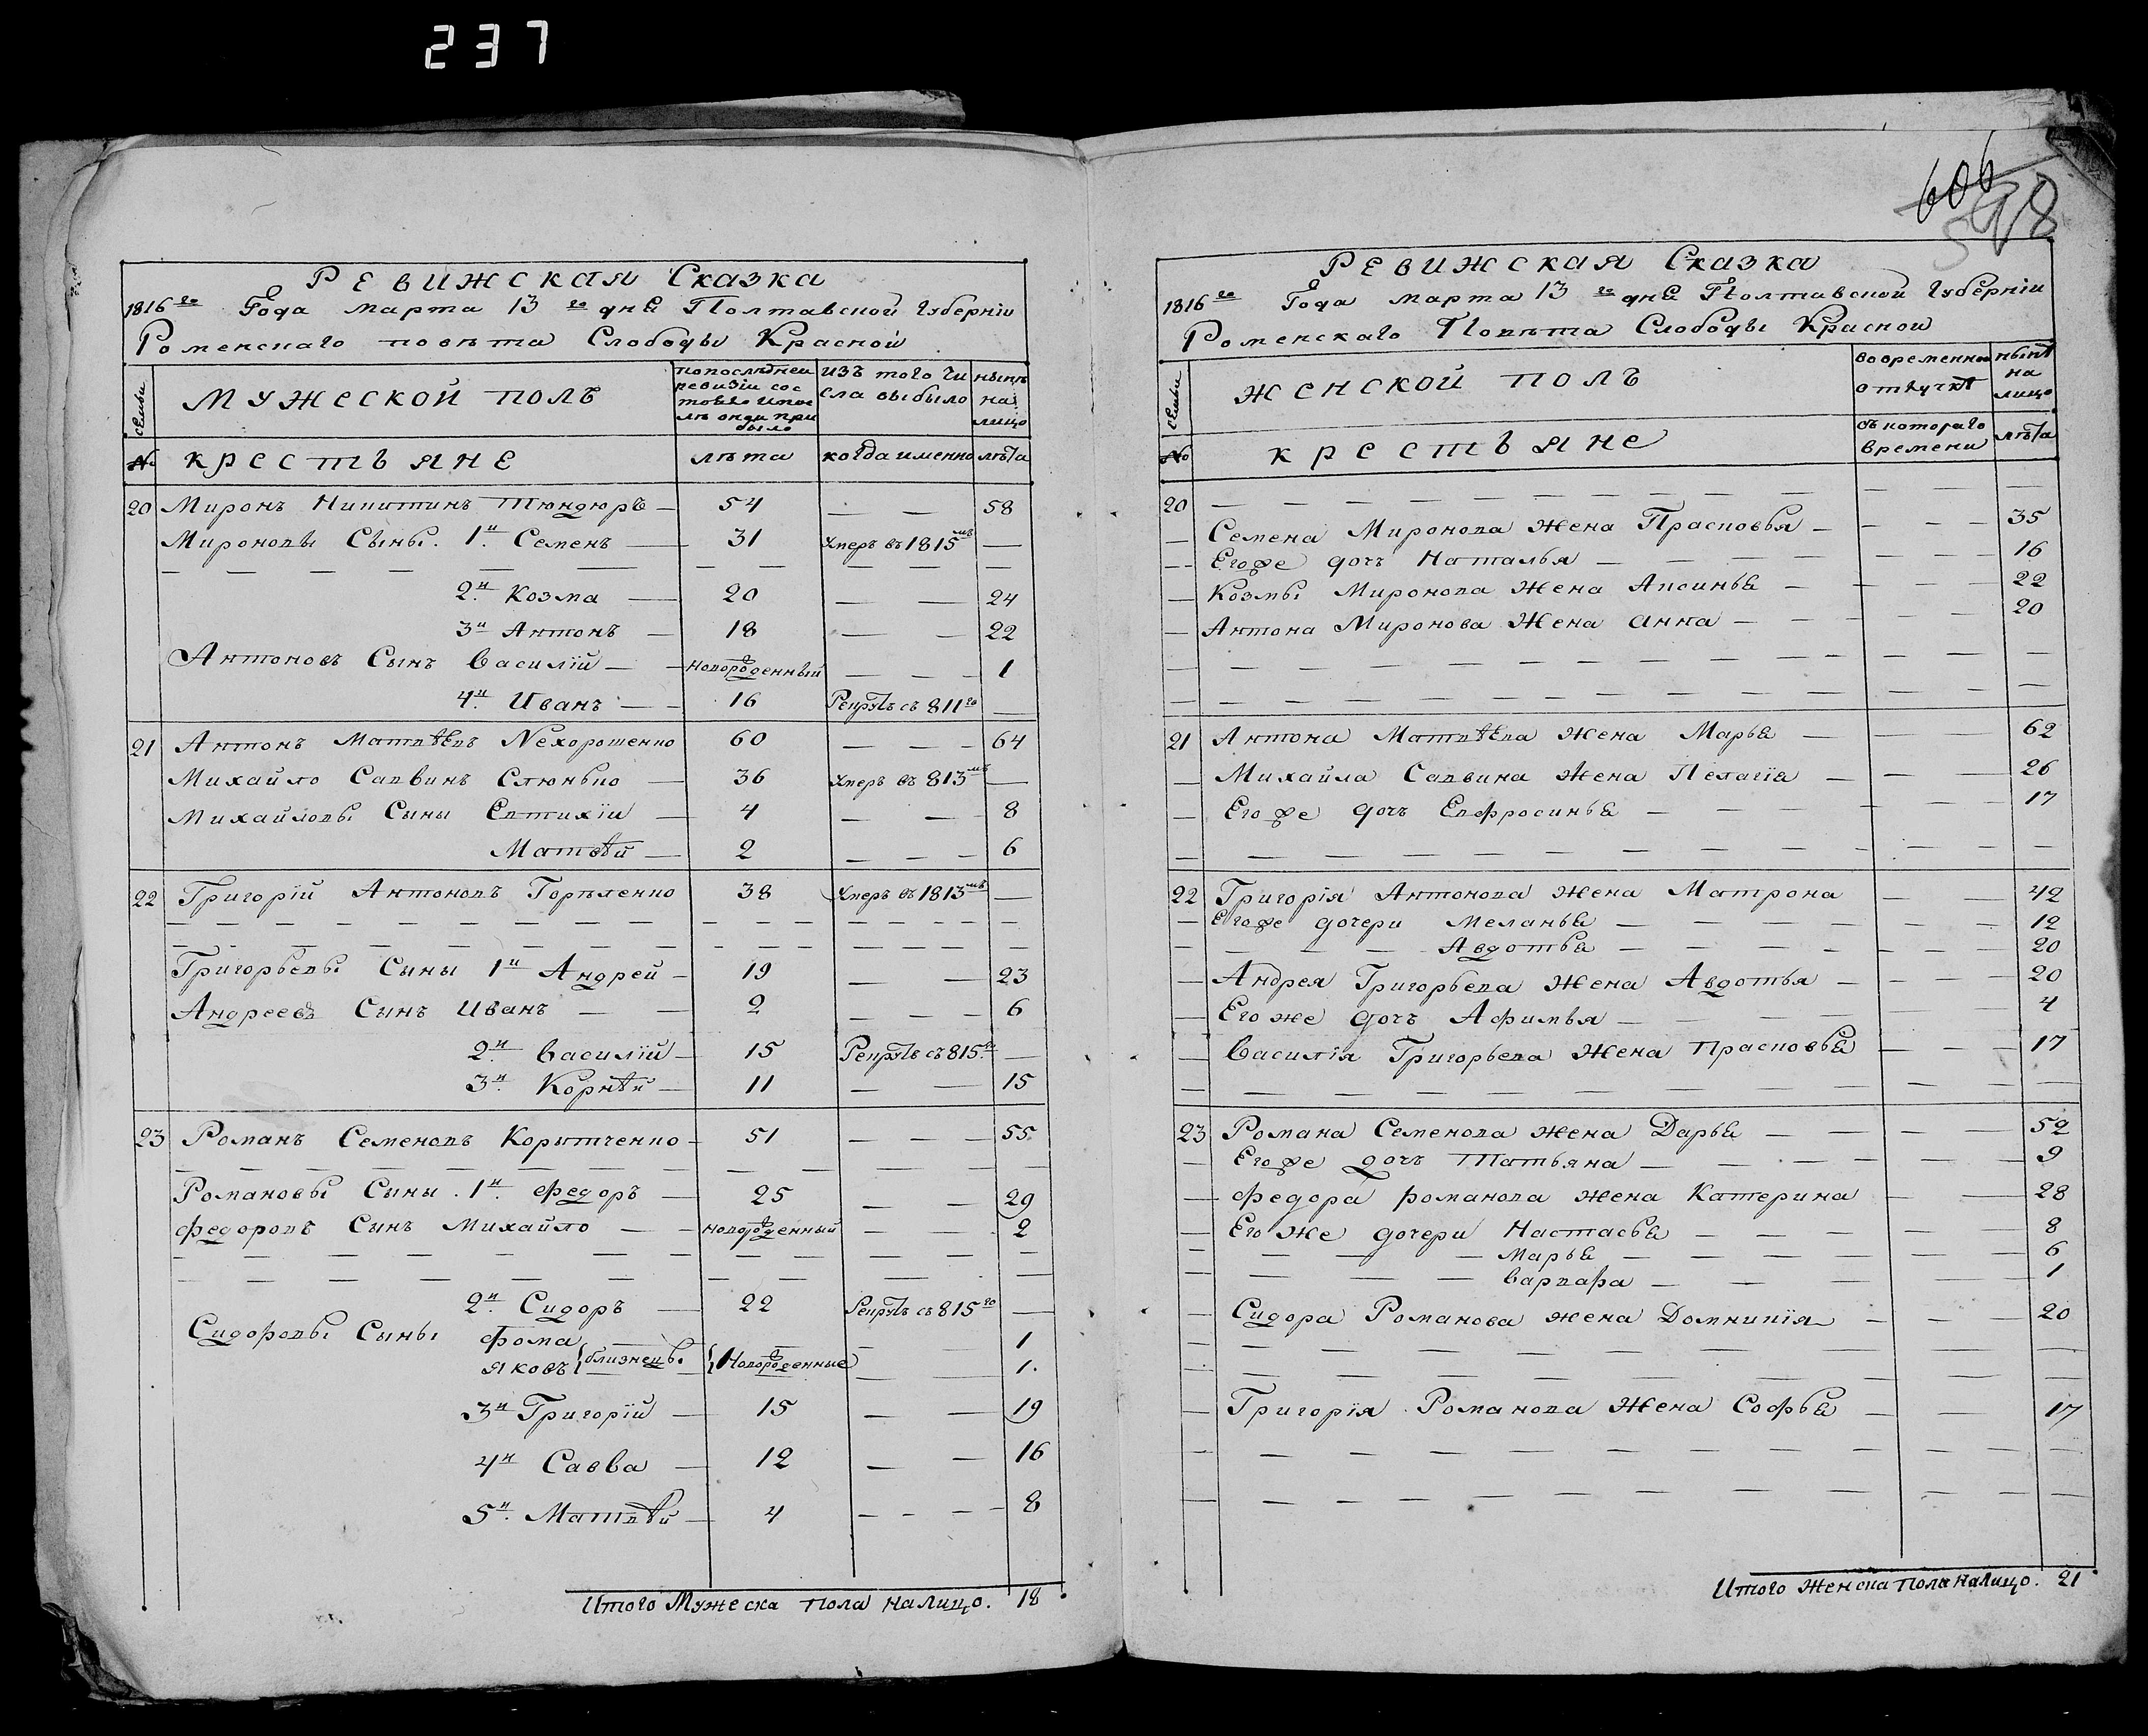 237
606
598
Ревижская Сказка
1816го Года марта 13го дня Полтавской Губерніи
Роменскаго повѣта Слободы Красной
семьи
мужеской полъ
попослѣднеи ревизіи сос
изъ того чи
сла выбыло
нынѣ
на
лицо
№
крестьяне
лѣта
когда именно
лѣта
20 Миронъ Никитинъ Тюндюръ — 54 — — 58
Мироновы Сыны. 1й. Семенъ — 31 Умеръ въ 1815мъ —
2й. Козма — 20 — — 24
3й Антонъ — 18 — — 22
Антоновъ Сынъ Василій — новорожденный — — — 1
4й. Иванъ — 16 Рекрутъ съ 811го —
21 Антонъ Матвѣевъ Нехорошенко 60 — — — 64
Михайло Саввинъ Слюнько — 36 Умеръ въ 813мъ —
Михайловы Сыны Евтихіи — 4 — — 8
Матвѣй — 2 — — — 6
22 Григорій Антоновъ Горѣленко 38 Умеръ въ 1813мъ —
Григорьевы Сыны 1й Андрей — 19 — — 23
Андреевъ Сынъ Иванъ — — 2 — — — 6
2й. Василій — 15 Рекрутъ съ 815.го —
3й. Корнѣй — 11 — — 15
23 Романъ Семеновъ Корытченко — 51 — — — 55
Романовы Сыны. 1й. Федоръ — 25 — — 29
Федоровъ Сынъ Михайло — — новорожденный — — 2
2й. Сидоръ — 22 Рекрутъ съ 815го —
Сидоровы Сыны Фома — 1
Яковъ { близнецы { Новорожденные — — 1.
3й Григорій — 15 — — 19
4й Савва — 12 — — 16
5й. Матвѣй — 4 — — — 8
Итого Мужеска пола налицо. 18
Ревижская Сказка
1816го Года марта 13го дня Полтавской Губерніи
Роменскаго Повѣта Слободы Красной
семьи
женской полъ
вовременнои
отлучкѣ
нынѣ
на
лицо
№
крестьяне
съ котораго
времени
лѣта
20 — — —
Семена Миронова жена Прасковья — 35
Егоже дочь Наталья — 16
Козмы Миронова Жена Аксинья — 22
Антона Миронова Жена Анна — 20
21 Антона Матвѣева жена Марья — 62
Михайла Саввина жена Пелагія — 26
Егоже дочъ Евфросинья — 17
22 Григорія Антонова жена Матрона — — 42
Егоже дочери Меланья — 12
Авдотья — 20
Андрея Григорьева жена Авдотья — 20
Его же дочъ Афимья — 4
Василія Григорьева жена Прасковья — 17
23 Романа Семенова жена Дарья — 52
Егоже дочъ Татьяна — 9
Федора романова жена Катерина — 28
Его же дочери Настасья — 8
Марья — 6
Варвара — 1
Сидора Романова жена Домникія — 20
Григорія Романова жена Софья — 17
Итого Женска пола налицо. 21